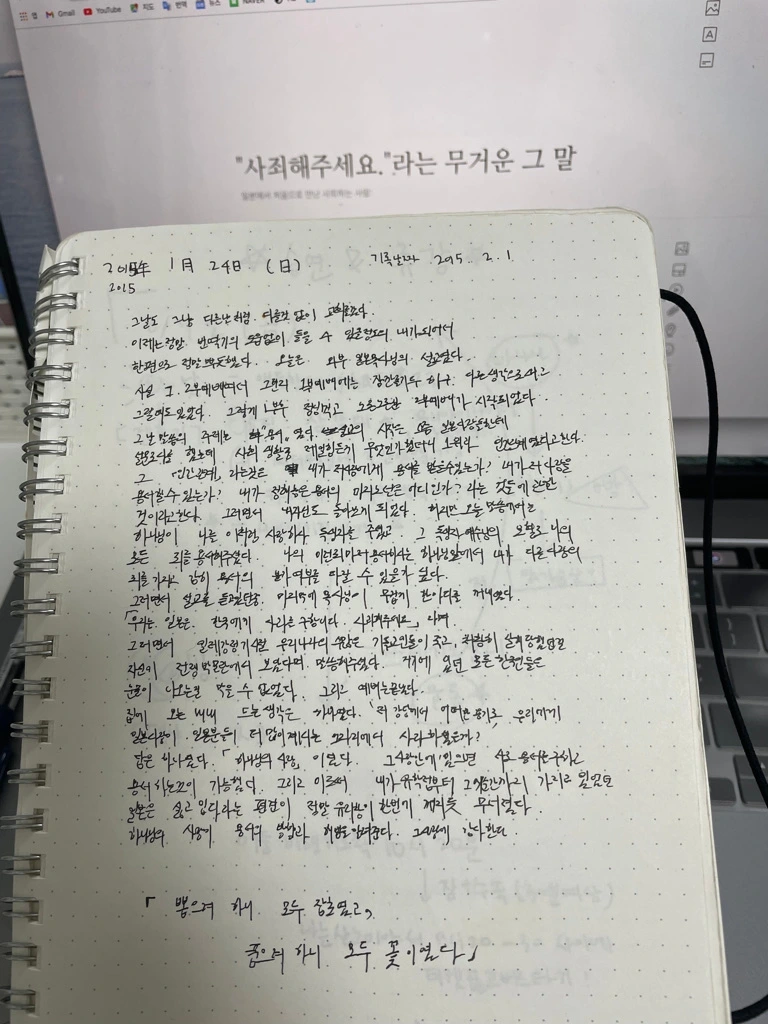 앱 Gmail YouTube 지도 번역 뉴스 NAVER
"사죄해주세요."라는 무거운 그 말
일본에서 처음으로 만난 사죄하는 사람
2015年 1月 24日 (日) 기록날짜 2015. 2. 1
2015
그날도 그냥 다른날처럼 다를것 없이
이제는 정말 번역기의 도움없이 들을 수 있을정도의 내가 되어서
한편으로 정말 뿌듯했다. 오늘은 외부 일본목사님의 설교였다.
사실 1, 2부예배여서 그런지 1부예배에는
그랬던 것 그렇게 1부후 점심먹고 2부예배가 시작되었다.
그 날 말씀의 주제는 였다. 설교의 시작은 요즘 일본사람들한테
설문조사를 했는데 사회 생활중 제일힘든게 무엇인가했더니 1위가 인간관계 였다고한다.
그 "인간관계"라는것은 내가 용서를 받을수있는가? 내가 저 사람을
용서할수 있는가? 내가 정해놓은 용서의 마지노선은 어디인가? 라는 것들에 관한
것이라고한다. 그러면서 내자신도 돌아보게 되었다. 하지만 오늘 말씀에서는
하나님이 나를 이처럼 사랑하사 독생자를 주셨고 그 독생자 예수님의 보혈로 나의
모든 죄를 용서해주셨다. 나의 용서하시는 하나님앞에서 내가 다른사람의
죄를 가지고 감히 용서의 여부를 따질 수 있을까 싶다.
그러면서 설교를 듣고있던중 마지막에 목사님이 무겁게 한마디를 꺼내셨다.
「우리는 일본은 한국에게 사죄를 구합니다. 사죄해주세요」 라며
그러면서 일제강점기시절 우리나라의 수많은 기독교인들이 죽고, 처참히 살해당했던걸
자신이 전쟁 박물관에서 보았다며 말씀해주셨다. 거기에 있던 모든 한국인들은
눈물이 나오는걸 막을 수 없었다. 그리고 예배는 끝났다.
집에 오는 내내 드는생각은 하나였다. 「저 강단에서 어떠한 용기로 우리에게
일본사람이 일본분들이 더 많이계시는 그자리에서 사죄 하셨을까?
답은 하나였다. 「하나님의 사랑」 이었다. 그사랑안에 있으면 서로 용서를 구하고
용서 하는것이 가능했다. 그리고 이로써 내가 유학전부터 그시간까지 가지고 있었던
일본은 싫고 밉다라는 편견이 정말 유리창이 한번에 깨지듯 무너졌다.
하나님의 사랑이 용서의 방향과 알려준다. 그사랑에 감사한다.
「 뽑으려 하니 모두 잡초였고,
품으려 하니 모두 꽃이었다」